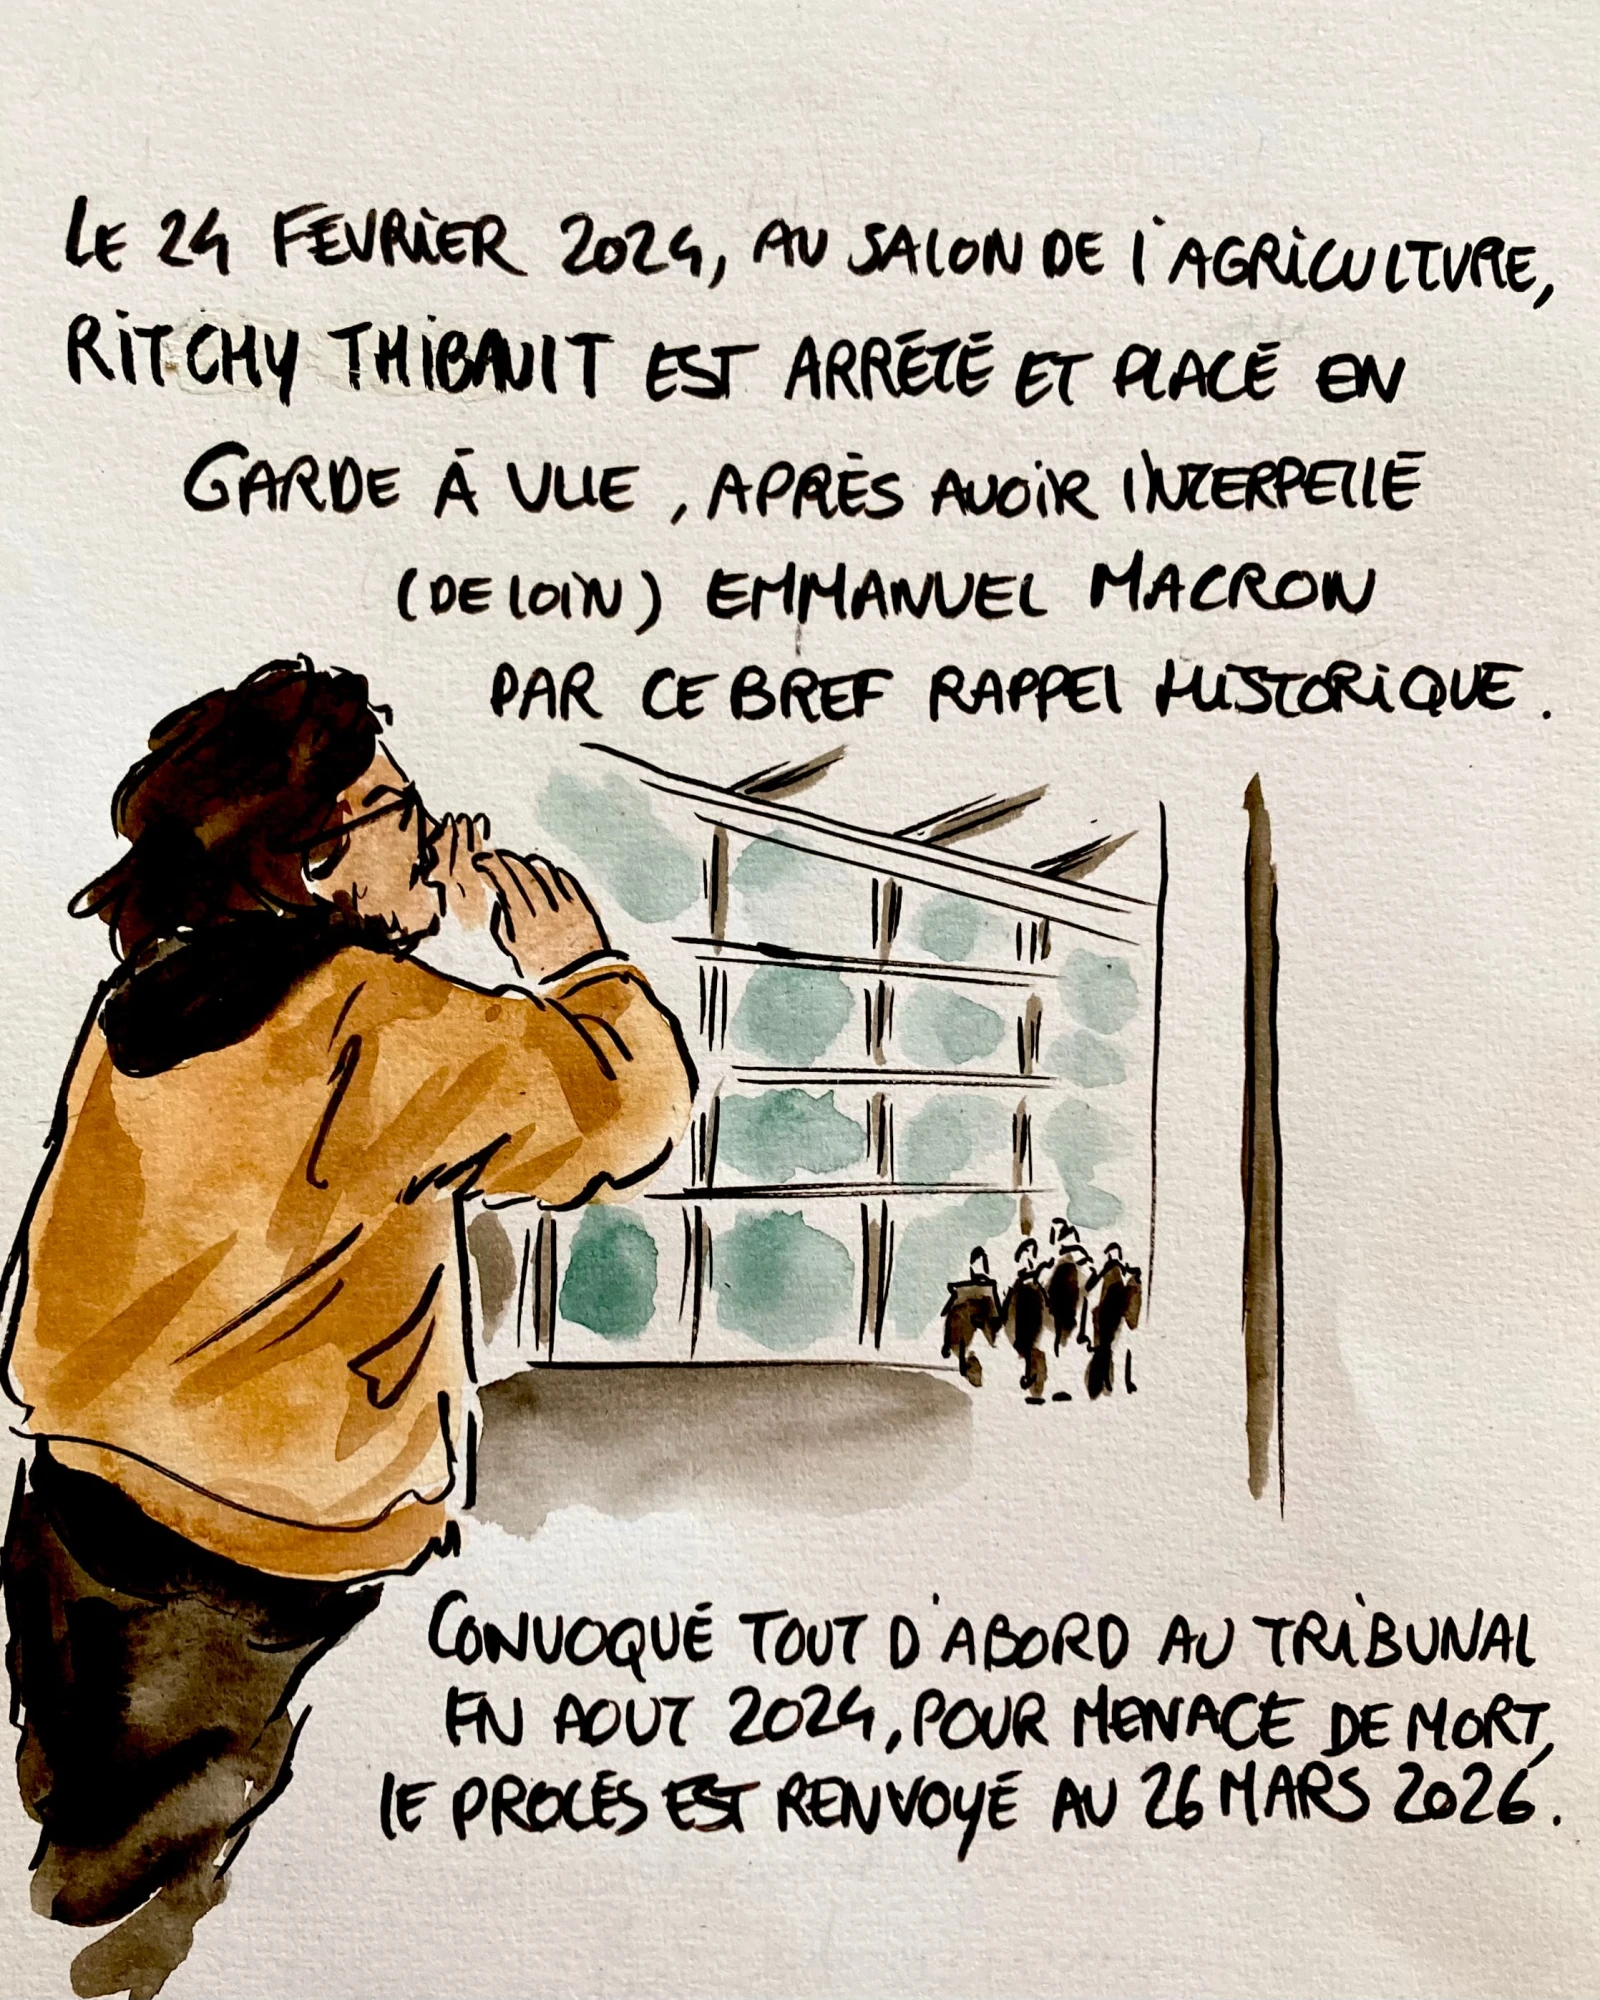 LE 24 FEVRIER 2024, AU SALON DE l'AGRICULTURE,
RITCHY THIBAULT EST ARRÊTÉ ET PLACÉ EN
GARDE À VUE, APRÈS AVOIR INTERPELLÉ
(DE LOIN) EMMANUEL MACRON
PAR CE BREF RAPPEL HISTORIQUE.
CONVOQUÉ TOUT D'ABORD AU TRIBUNAL
EN AOUT 2024, POUR MENACE DE MORT,
lE PROCÈS EST RENVOYÉ AU 26 MARS 2026.